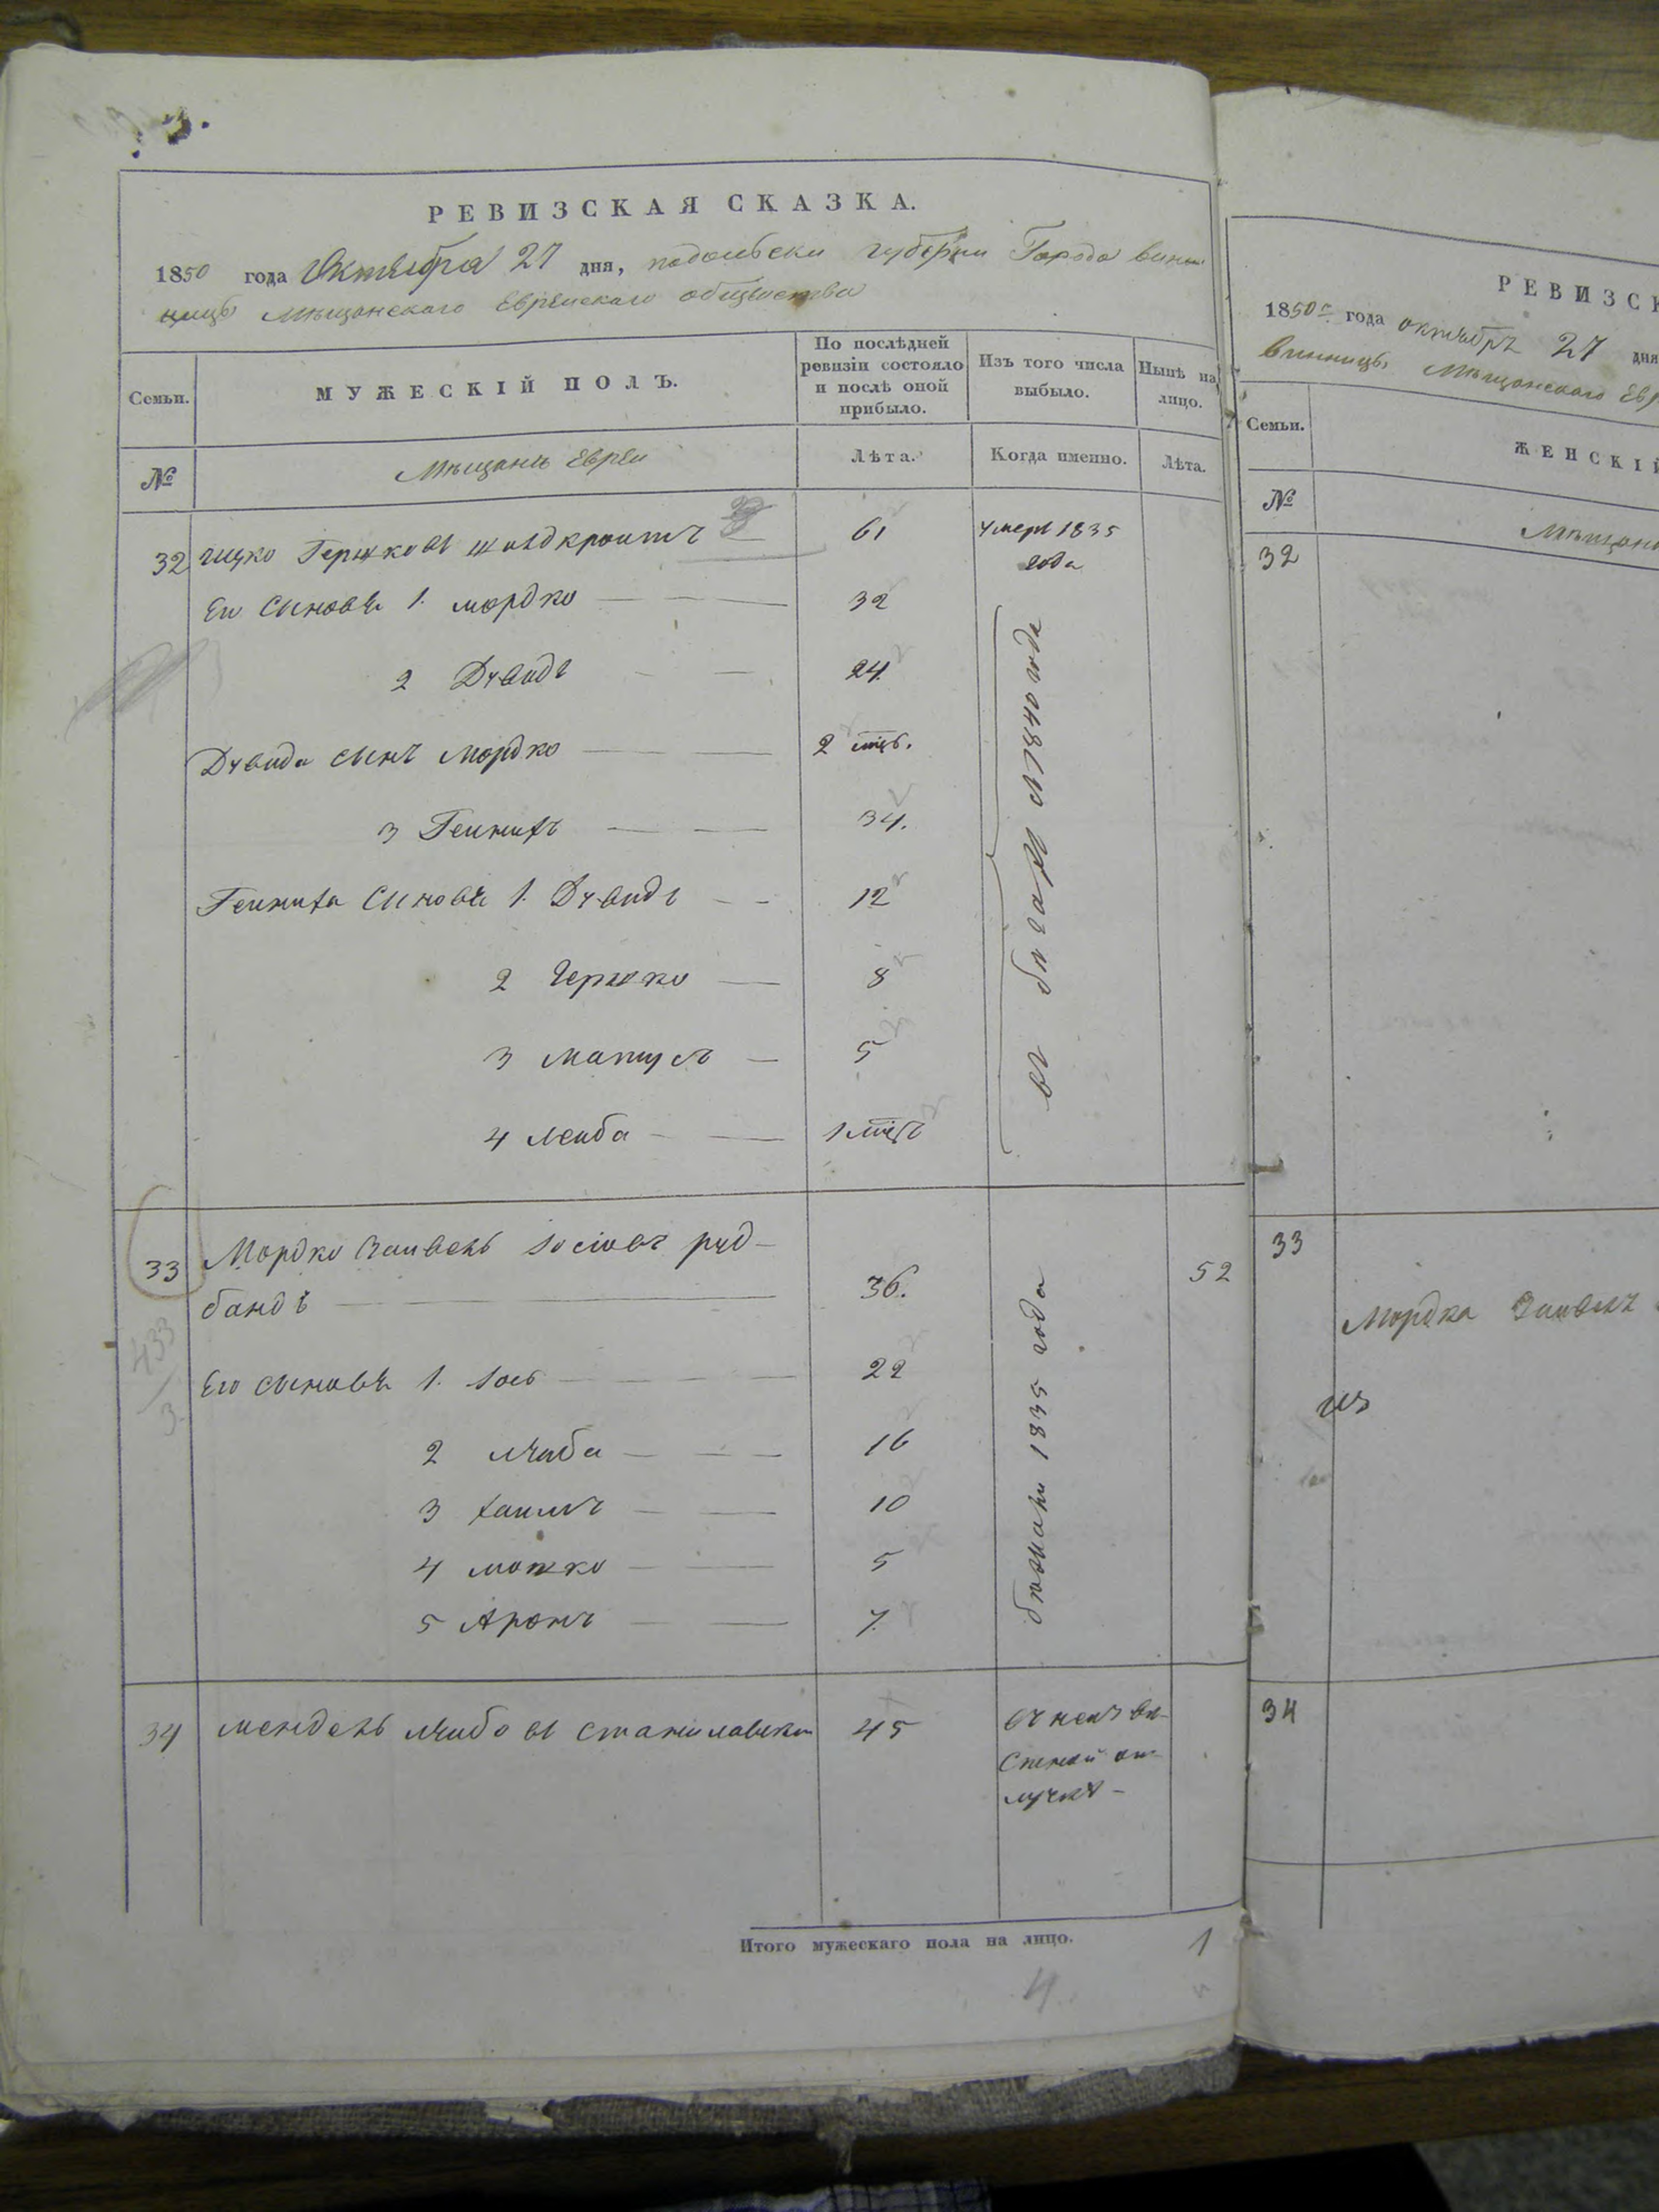 РЕВИЗСКАЯ СКАЗКА.
1850 года Октября 27 дня, подольской губернии Города вин
ницы Мѣщанскаго Еврейскаго общества
Семьи.
МУЖЕСКІЙ ПОЛЪ.
По послѣдней ревизіи состояло и послѣ оной прибыло.
Изъ того числа выбыло.
Нынѣ на лицо.
№
Мѣщане Евреи
Лѣта.
Когда именно.
Лѣта.
32 Ицко Гершковъ 61 умеръ 1835 года
Его Сыновья 1. мордко 32
2 Дувидъ 24
Дувида сынъ мордко 2 мѣс.
3 Гейнихъ 34.
Гейниха Сыновья 1. Дувидъ 12
2 Гершко 8
3 матусъ 5
4 лейба 1 мѣсъ
въ бѣгахъ съ 1840 года
33 Мордко Зайвель Іосіовъ руд-
бандъ 36. 52
Его сыновья 1. Іось 22
2 Лейба 16
3 хаимъ 10
4 мошко 5
5 Аронъ 7.
бѣжали 1835 года
433
3
34 мендель Лейбовъ 45 въ неизвѣ-
стной от-
лучкѣ
Итого мужескаго пола на лицо. 1
4
РЕВИЗСК
1850 г. года октября 27 дня
Винницы Мѣщанскаго Евр
Семьи.
ЖЕНСКІЙ
№
Мѣщане
32
33
Мордка Зайвель
34